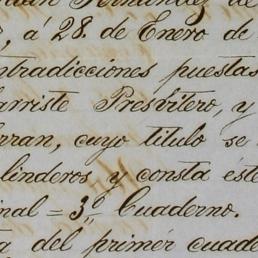 Juan Fernandez de
, á 28. de Enero de
ntradicciones puestas
arriste Presvitero, y
rran, cuyo titulo se
linderos, y consta éste
inal = 3º Cuaderno.
a del primér cuade